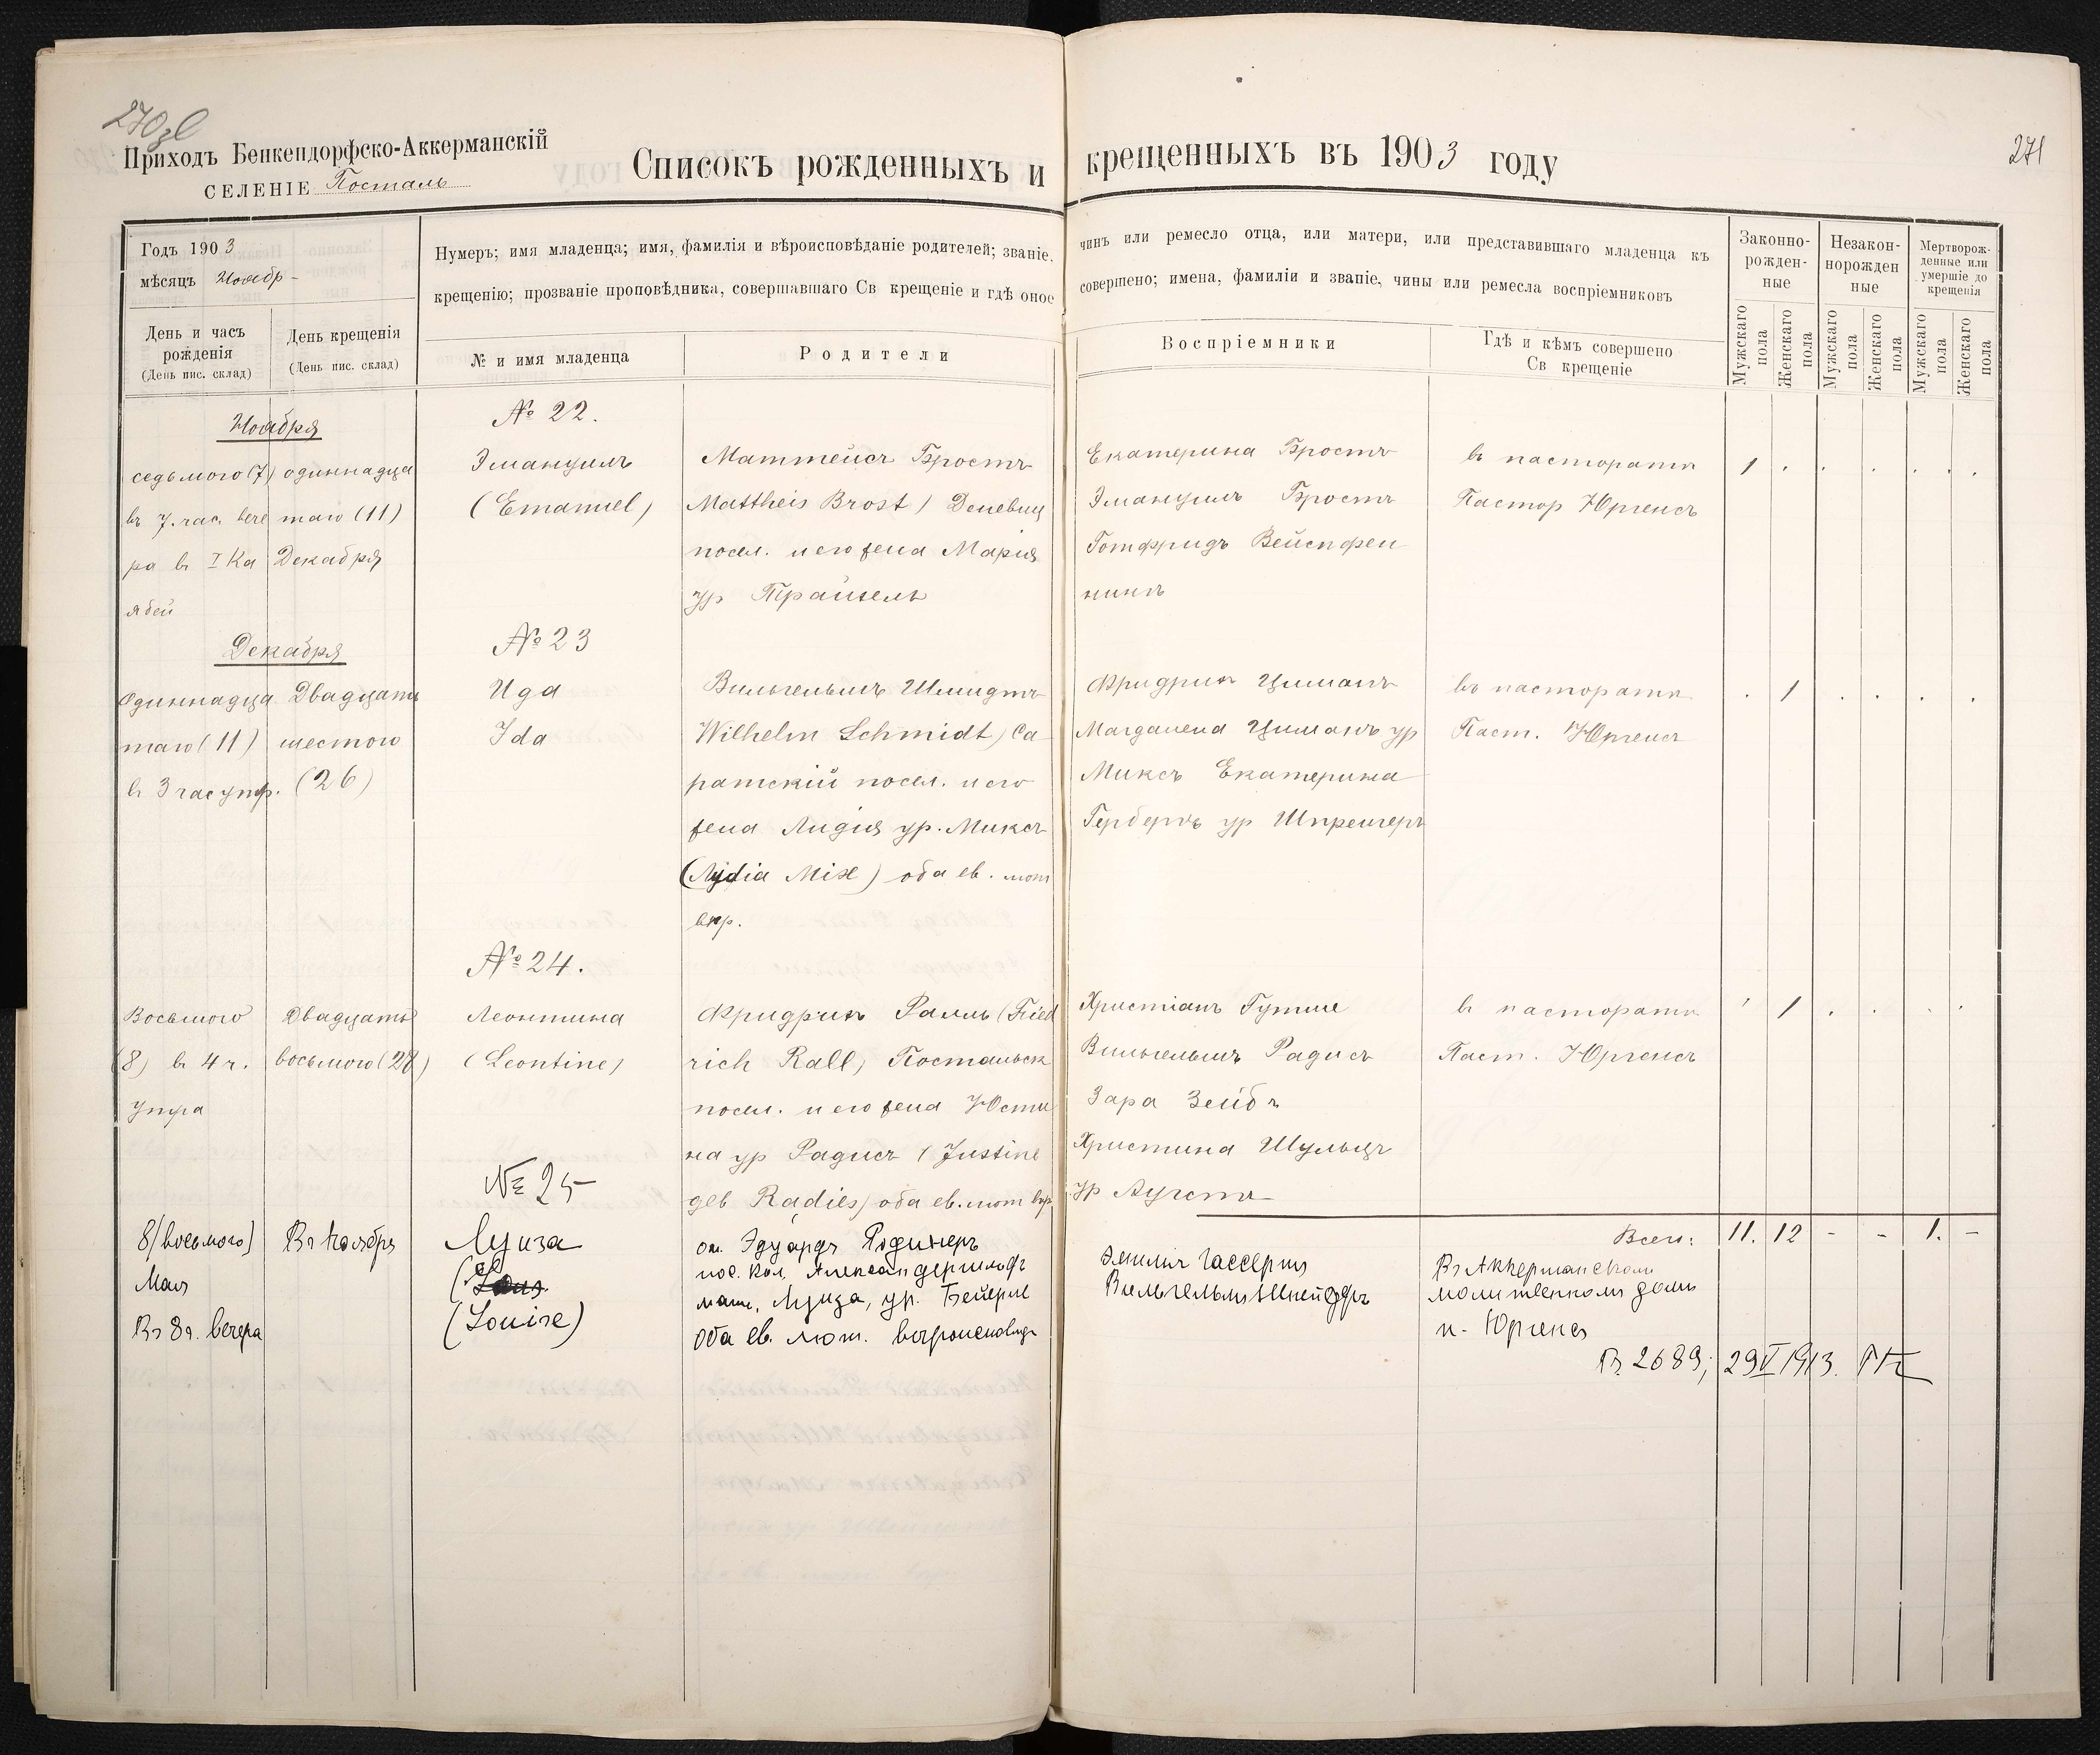 270
271
Приходъ Бенкендорфско-Аккерманскій
СЕЛЕНІЕ Посталь
Списокъ рожденныхъ и крещенныхъ въ 1903 году
Годъ 1903
мѣсяцъ Ноябр-
Нумеръ; имя младенца; имя, фамилія и вѣроисповѣданіе родителей; званіе,
крещенію; прозваніе проповѣдника, совершавшаго Св крещеніе и гдѣ оное
чинъ или ремесло отца, или матери, или представившаго младенца къ
совершено; имена, фамиліи и званіе, чины или ремесла воспріемниковъ
Законно-
рожден-
ные
Незакон-
норожден
ные
Мертворож-
денные или
умершіе до
крещенія
День и часъ
рожденія
(День пис. склад)
День крещенія
(День пис. склад)
№ и имя младенца
Родители
Воспріемники
Гдѣ и кѣмъ совершено
Св крещеніе
Мужскаго пола
Женскаго пола
Мужскаго пола
Женскаго пола
Мужскаго пола
Женскаго пола
Ноября
седьмого (7)
въ 7. час. вече
ра въ
ябей
одиннадца
таго (11)
Декабря
№ 22.
Эмануилъ
(Emanuel)
Маттейсъ Бростъ
Mattheis Brost)
посел. и его жена Марія
ур Трайзель
Екатерина Бростъ
Эмануилъ Бростъ
Готфридъ Вейспфен
нинъ
въ пасторатѣ
Пастор Юргенсъ
1 . . . . .
Декабря
Одиннадца
таго (11)
въ 3 час утр.
Двадцать
шестого
(26)
№ 23
Ида
Ida
Вильгельмъ Шмидтъ
Wilhelm Schmidt) Са
ратскій посел. и его
жена Лидія ур. Миксъ
(Lydia Mix) оба ев. лют
вѣр.
Фридрихъ Циманъ
Магдалена Циманъ ур
Миксъ Екатерина
Герберъ ур Шпренгеръ
въ пасторатѣ
Паст. Юргенсъ
. 1 . . . .
Восьмого
(8) въ 4 ч.
Утра
Двадцать
восьмого (28)
№ 24.
Леонтина
(Leontine)
Фридрихъ Ралль (Fried
rich Rall) Постальск
посел. и его жена Юсти
на ур Радисъ (Justine
geb Radies) оба ев. лют вѣр
Христіанъ Гутше
Вильгельмъ Радисъ
Зара Зейбъ
Христина Шульцъ
ур Аугстъ
въ пасторатѣ
Паст. Юргенсъ
1 . . . .
Всего: 11. 12 - - 1. -
8/восьмого)
Мая
Въ 8ч. вечера
8го Ноября
№ 25
Луиза
(Louise)
от. Эдуардъ
пос. кол. Александерфельдъ
мать, Луиза, ур. Бейерле
Оба ев. лют. вѣроисповѣд.
Эмилія
Вильгельмъ Шнейдеръ
Въ Аккерманскомъ
молитвенномъ домѣ
п. Юргенсъ
№ 2689; 29 V 1913.